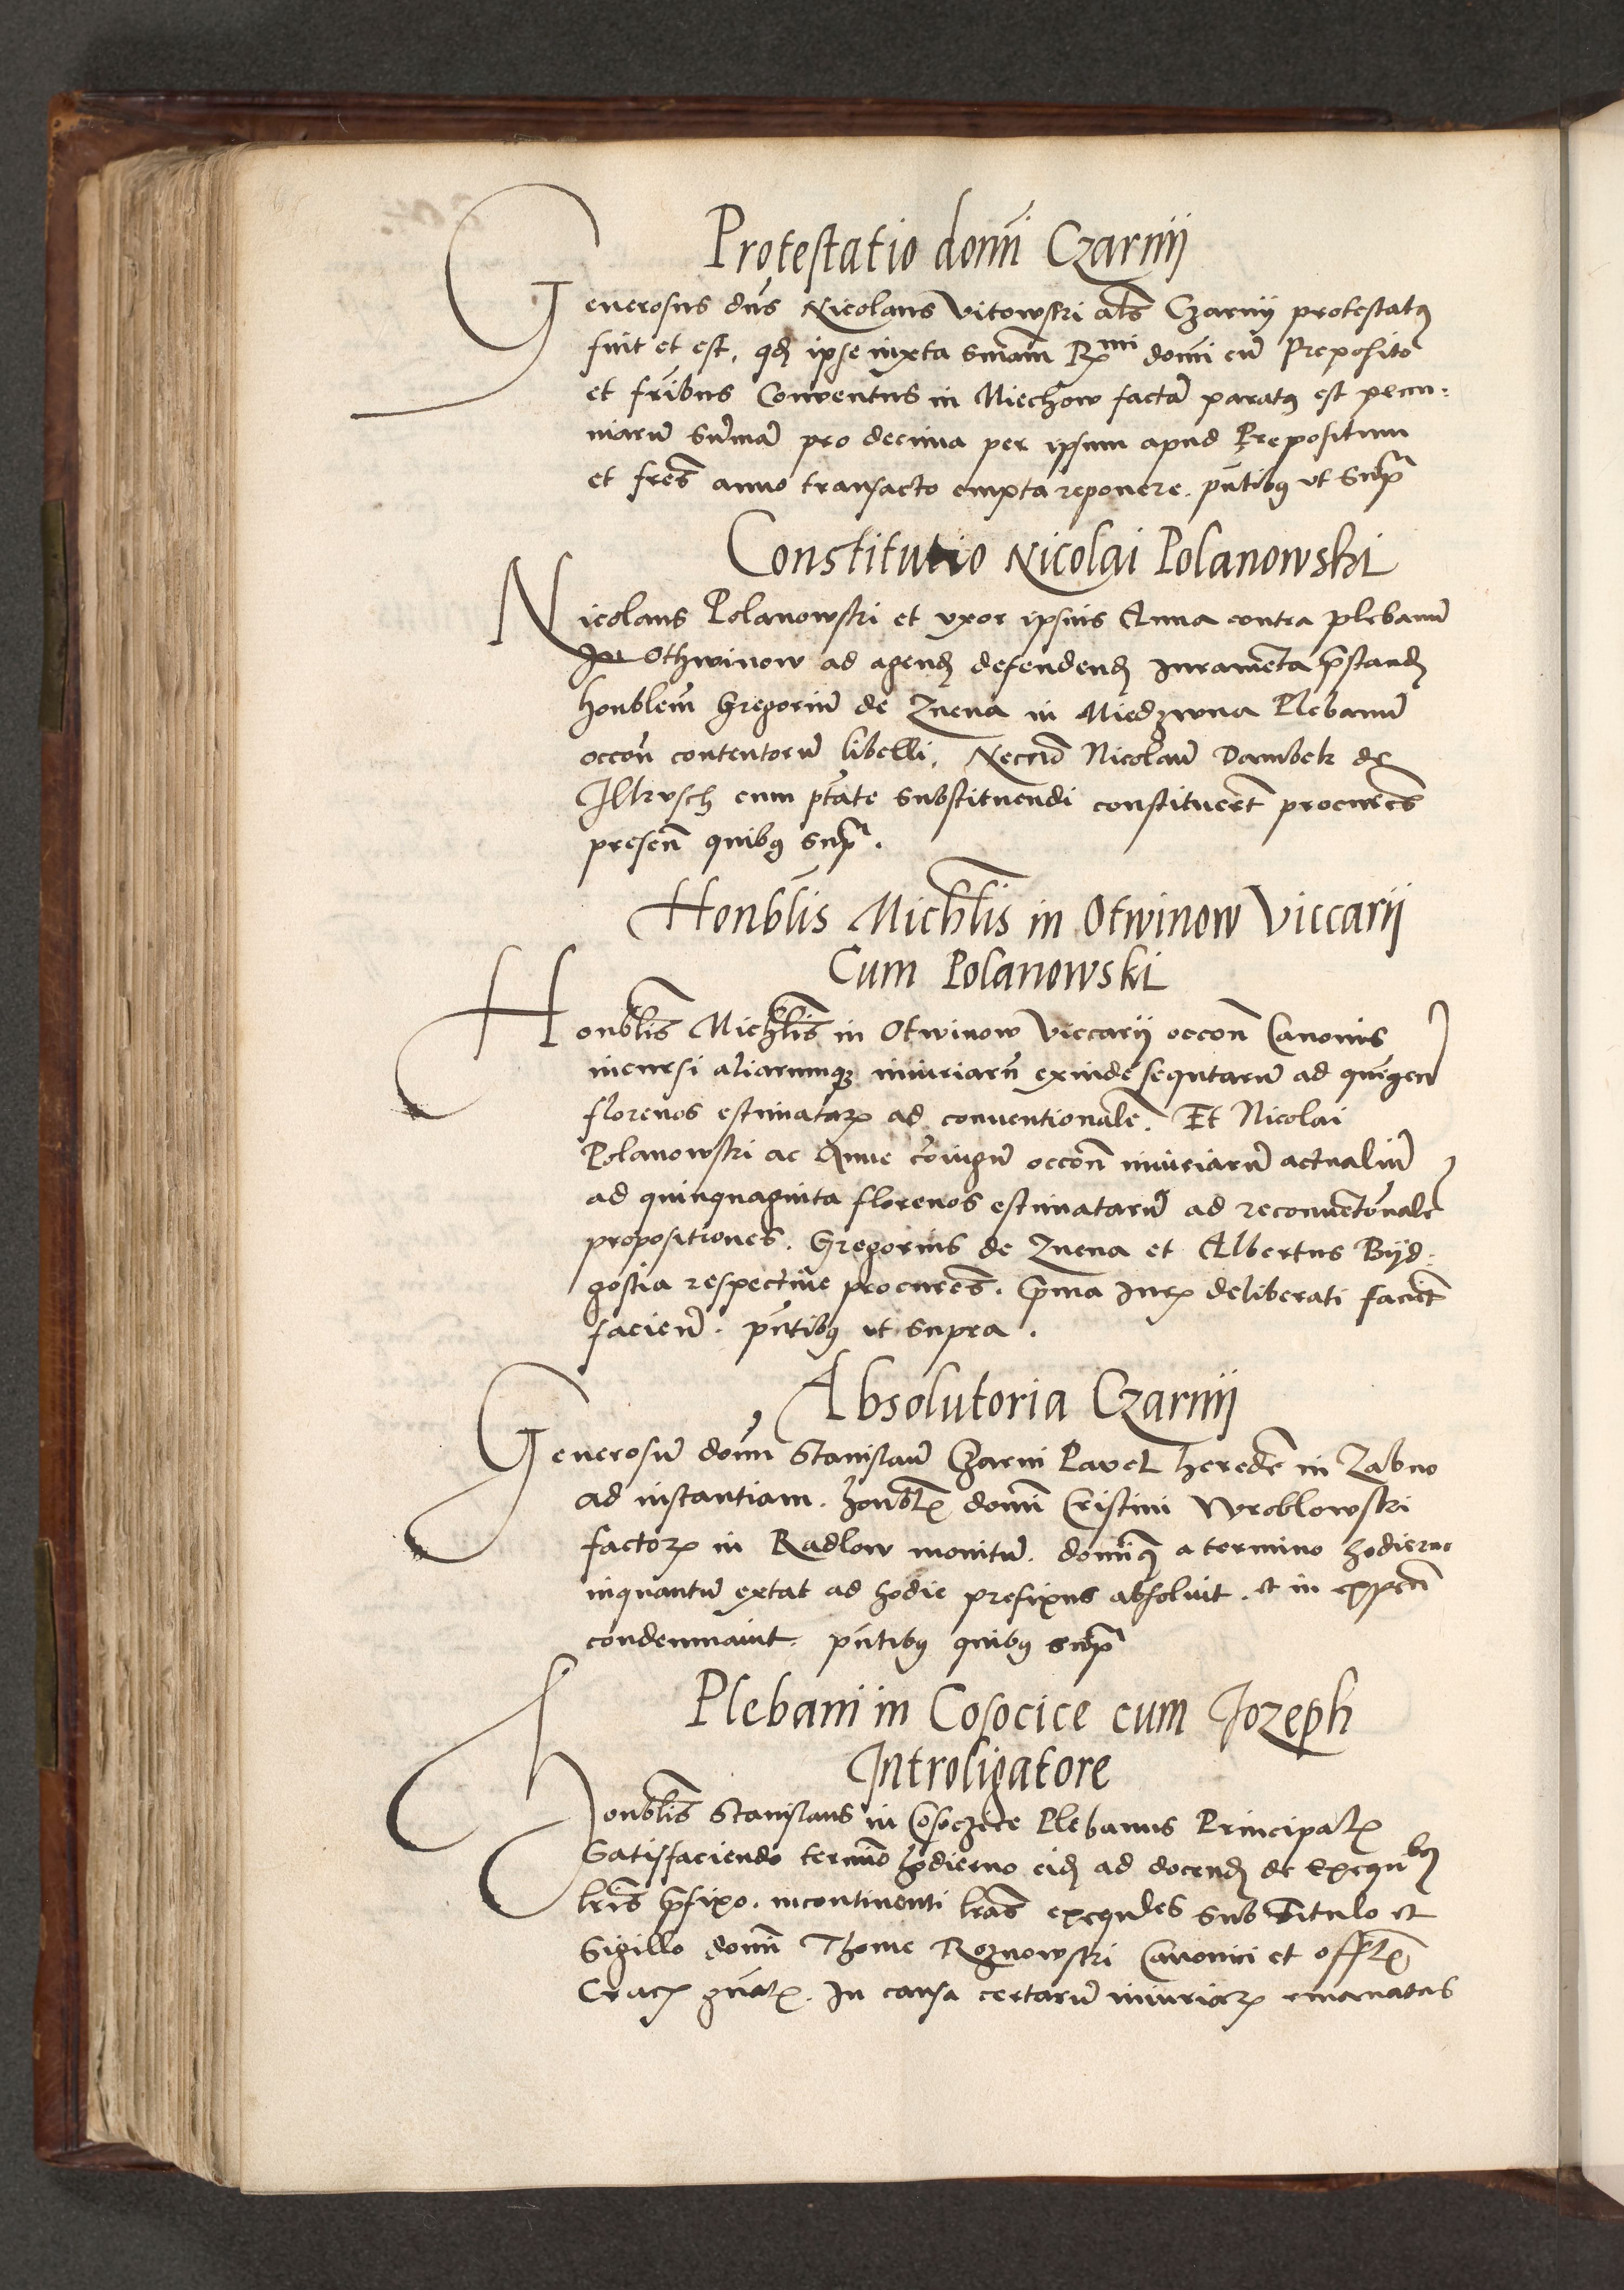 Protestatio domi Czarnij
Generosus dns Nicolaus Vitowski als Czarnij protestatꝯ
fuit et est, qd ipse iuxta smam Rmi domi cum Preposito
et fribus Conventus in Miechow factam paratꝯ est pecu-
niaru suma pro decima per ipsum apud Prepositum
et fres anno transacto empta reponere. pntibꝯ ut supra
Constitutio Nicolai Polanowski
Nicolaus Polanowski et vxor ipsius Anna contra plebanu
In Othwinow ad agend defendend Iuramenta prstand
honblem Gregoriu de Znena in Miedzwna Plebanu
occon contentoru libelli, Necno Nicolau Dambek de
Ilkvsch cum ptate substituendi constituert procures
presen quibꝯ supra.
Honblis Michlis in Otwinow Viccarij
Cum Polanowski
Honblis Michlis in Otwinow Viccarij occon Canonis
incursi aliarumqꝫ iniuriaru exinde sequtaru ad quigen
florenos estimataꝝ ad conventionale. Et Nicolai
Polanowski ac Anne coiugu occon iniuriaru actualiu
ad quinquaginta florenos estimataru ad reconuetonale
propositiones. Gregorius de Znena et Albertus Byd-
gostia respective procures. prima Iuꝝ deliberati faciet
faciend. pntibꝯ ut supra.
Absolutoria Czarnij
Generosu domi Stanislau Czarni Pavel herede in Zabno
ad instantiam. honblꝭ domi Cristini Wroblowski
factoꝝ in Radlow monitu. dominꝯ a termino hodierno
inquantu extat ad hodie prefixus absoluit. et in expen
condemnauit. pntibꝯ quibꝯ supra
Plebani in Cosocice cum Jozeph
Introligatore
Honblis Stanislaus in Cosoczice Plebanus Principalꝭ
Satisfaciendo termio hodierno eid ad docend de exequbꝯ
lris prfixo. incontinenti lras exequles sub titulo et
Sigillo domi Thome Roznowski Canonici et offlꝭ
Cracꝭ gnalꝭ. In causa certaru iniuriaꝝ emanatas